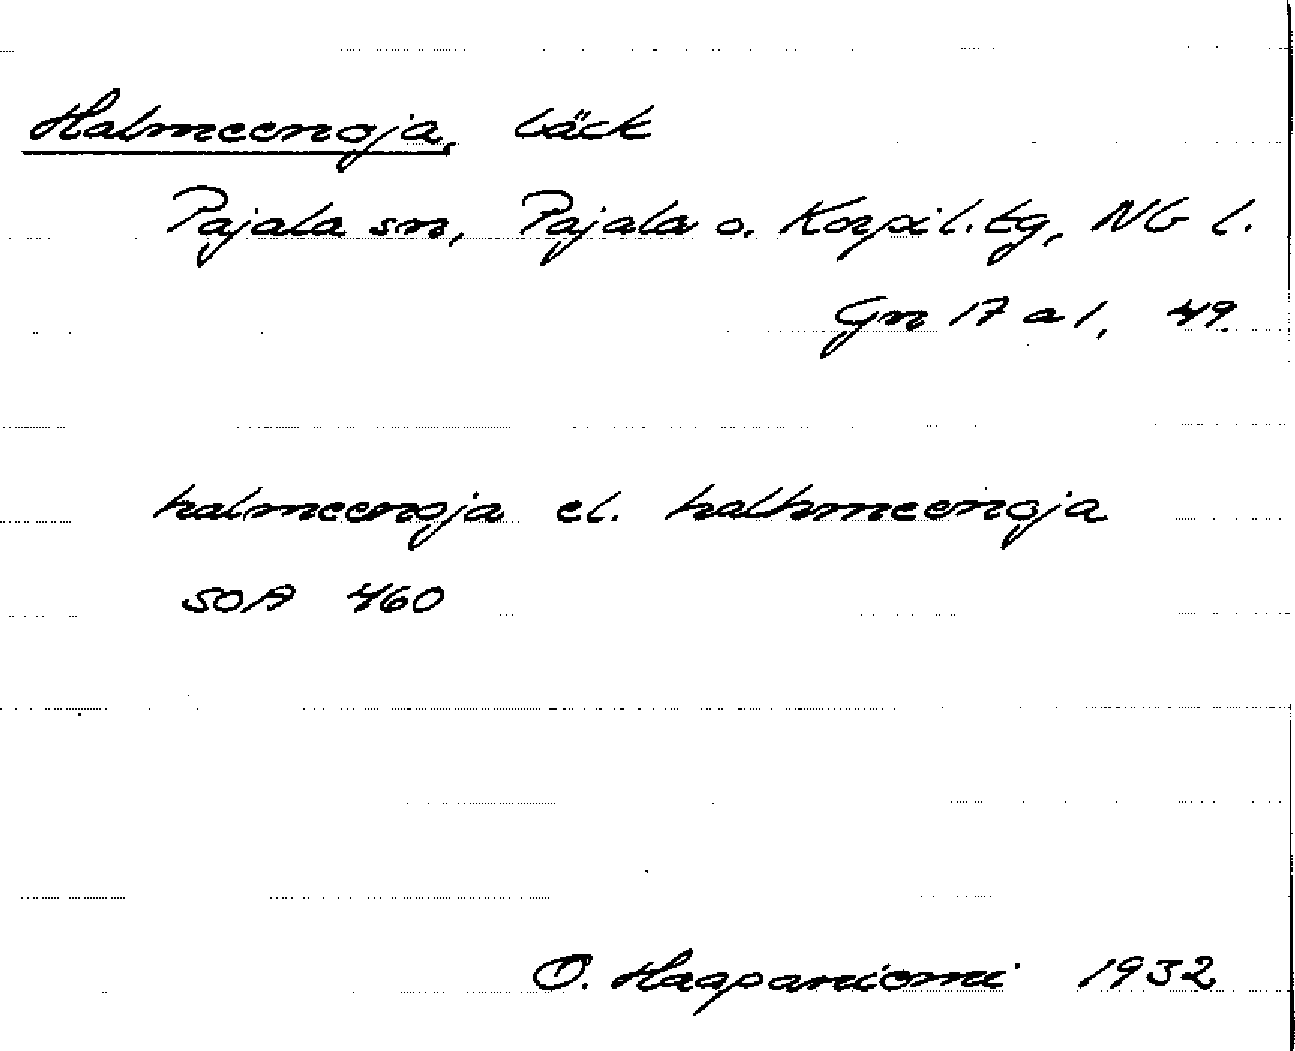 Halmeenoja, bäck
Pajala sn, Pajala o. Korpil. tg, Nb l.
Gn 17 a 1, 49.
halmeenoja el. halhmeenoja
SOA 460
O. Haapaniemi 1932